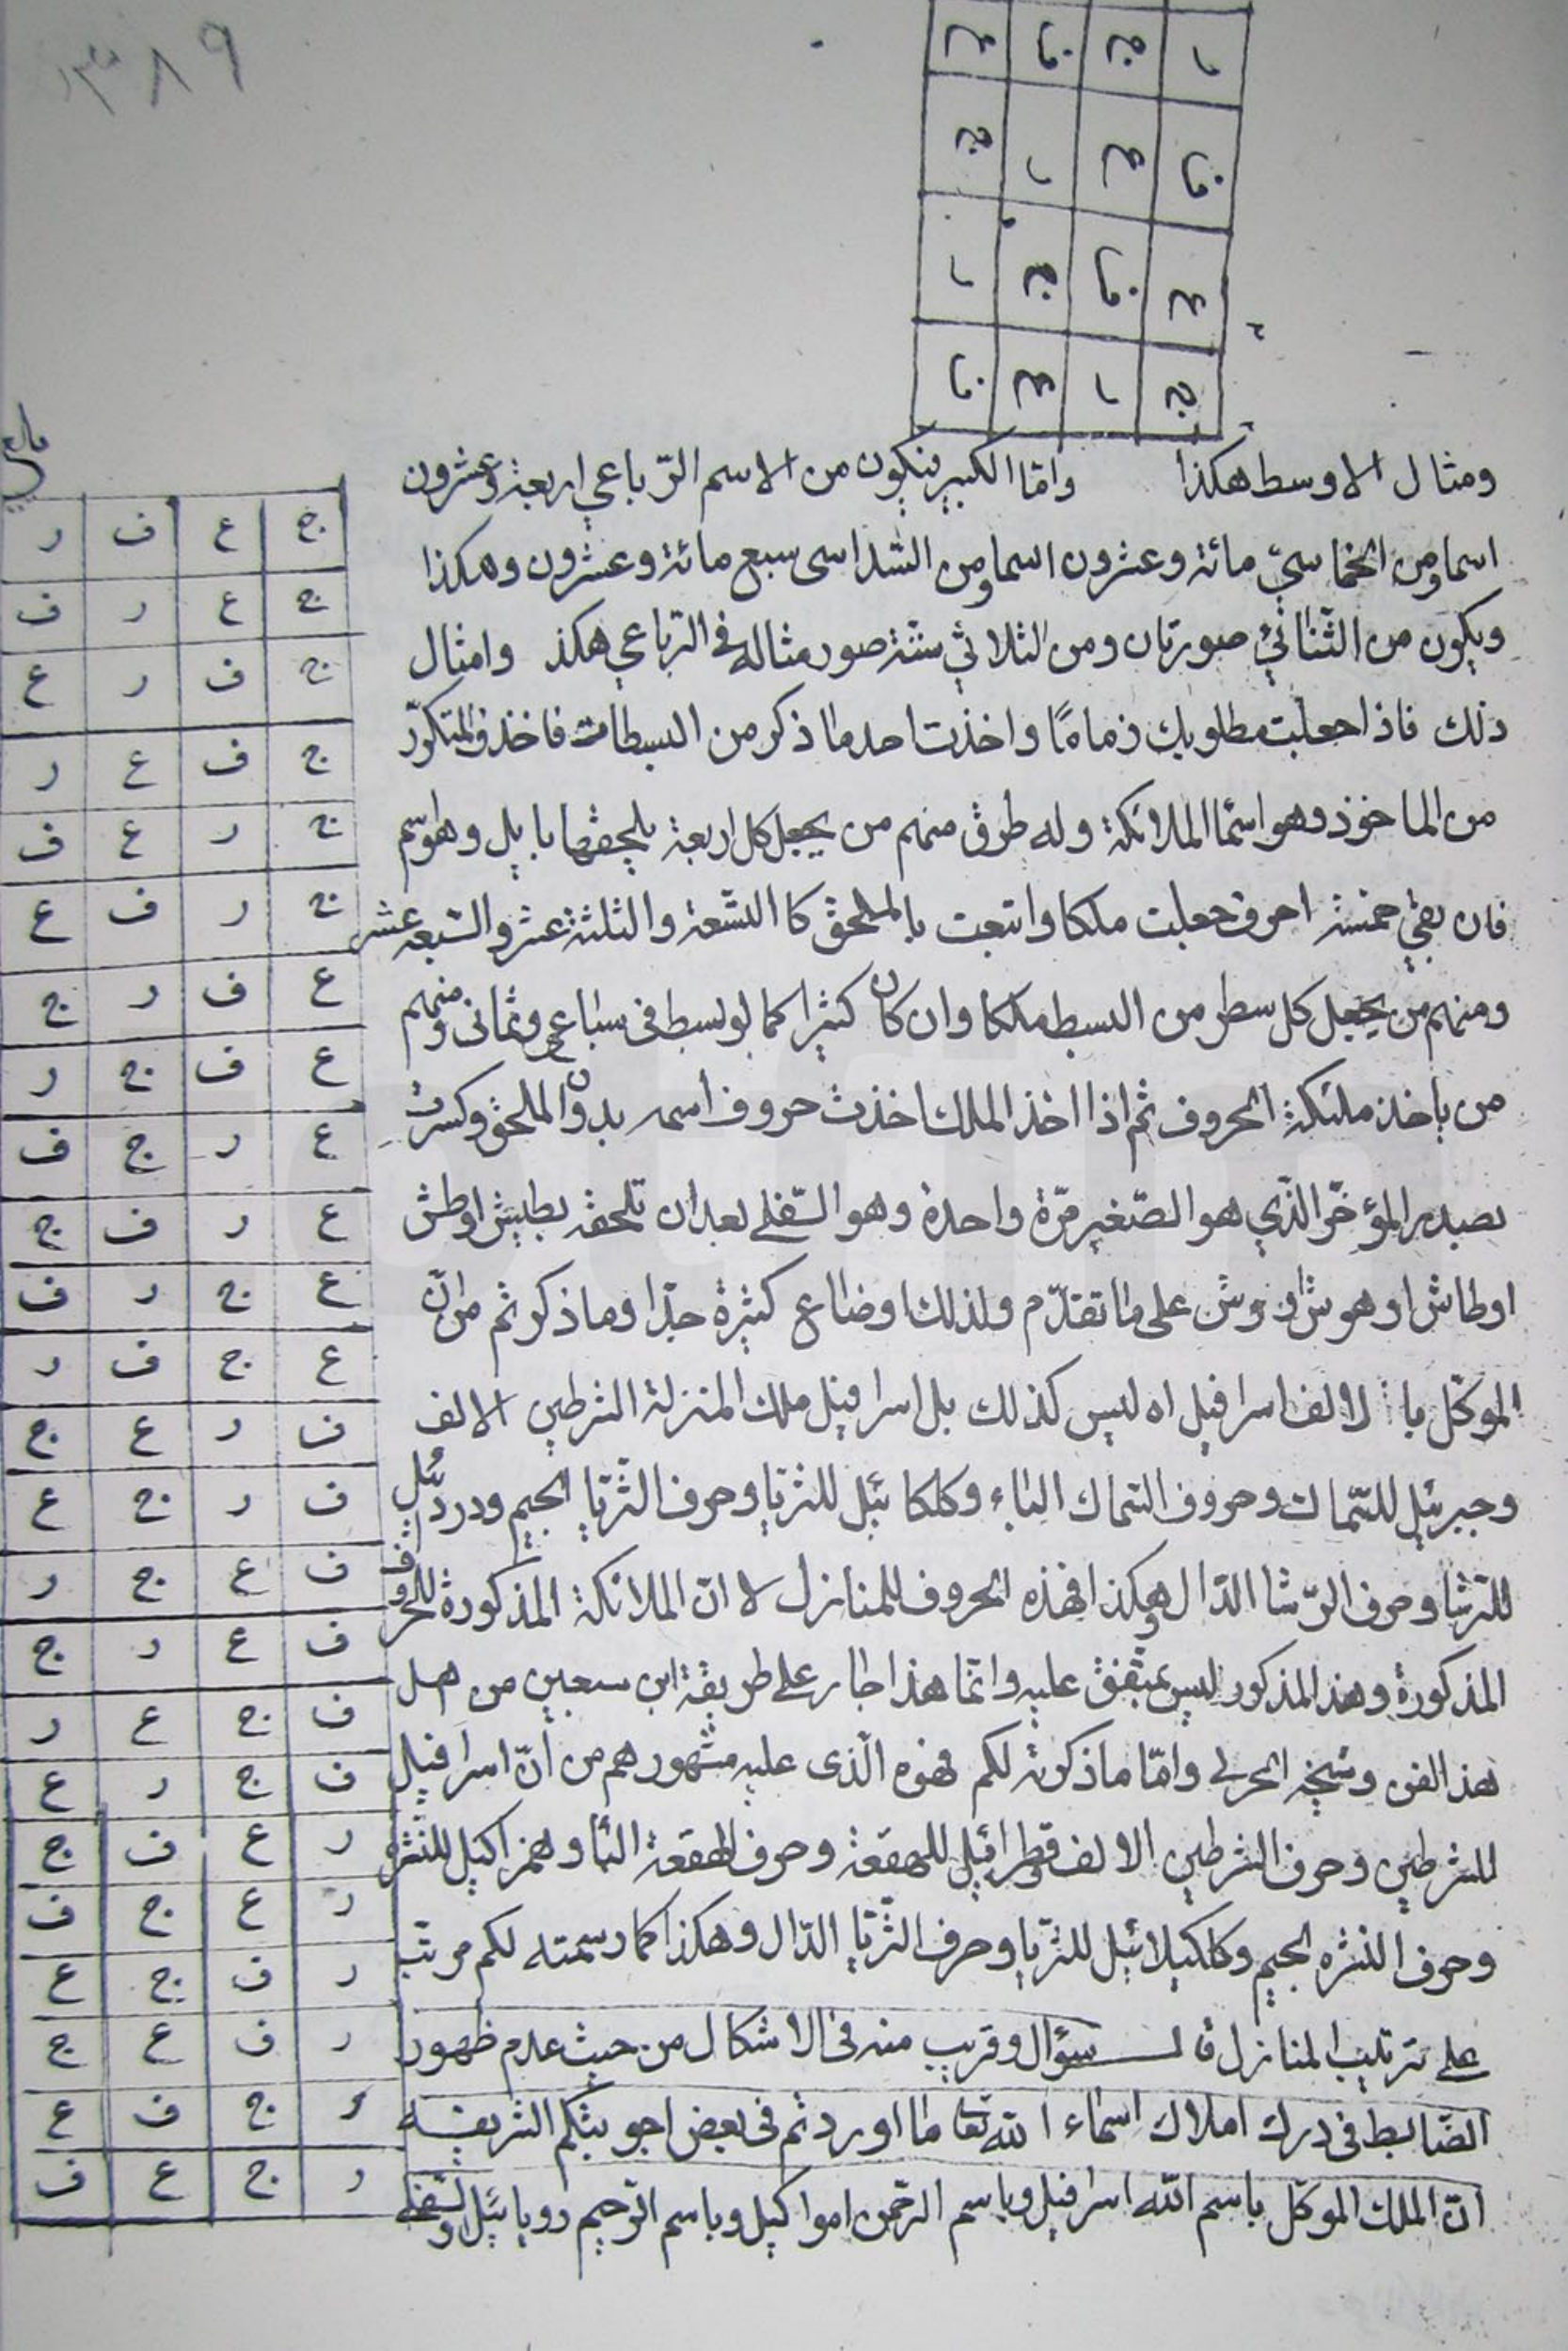 ٣٨٩
ع ف ج ر
ج ر ع ف
ر ج ف ع
ف ع ر ج
ومثال الاوسط هكذا واما الكبير فيكون من الاسم الرباعي اربعة وعشرون
اسما ومن الخماسيّ مائة وعشرون اسما ومن السداسى سبع مائة وعشرون وهكذا
ويكون من الثنائيّ صورتان ومن الثلاثي ستة صور مثاله في الرباعي هكذ وامثال
ذلك فاذا جعلت مطلوبك زمامًا واخذت احد ما ذكر من البسطات فاحذف المتكرّر
من الماخوذ وهو اسما الملائكة وله طرق منهم من يجعل كل اربعة يلحقها بايل وهو اسم
فان بقي خمسة احرف جعلت ملكا واتبعت بالملحق كا التسعة والثلثة عشر والسبعه عشر
ومنهم من يجعل كل سطر من البسط ملكا وان كان كثيرا كما لو بسط في سباعي وثمانى ومنهم
من ياخذ ملئكة الحروف ثم اذا اخذ الملك اخذت حروف اسمه بدون الملحق وكسرت
بصدر المؤخّر الذّي هو الصّغير مرّة واحدة وهو السّفلي بعد ان تلحقه بطيش او طش
او طاش او هوش او وش على ما تقدّم ولذلك اوضاع كثيرة جدّا وما ذكر ثم من انّ
الموكّل با لالف اسرافيل اه ليس كذلك بل اسرافيل ملك المنزلة الشرطين الالف
وجبرئيل للسّماك وحروف السّماك الباء وكلكائيل للثريّا وحرف الثّريّا الجيم ودردئيل
للرّشا وحرف الرّشا الدّال وهكذا فهذه الحروف للمنازل لا انّ الملائكة المذكورة للحروف
المذكورة وهذ المذكور ليس بمتّفق عليه وانّما هذا جار على طريقة ابن سبعين من اهل
هذ الفن وشيخه الحرلي وامّا ما ذكرته لكم فهوه الّذى عليه مشهورهم من انّ اسرافيل
للشرطين وحرف الشرطين الالف وقطرائيل للهقعة وحرف الهقعة البأ وهمراكيل للنّثره
وحرف النثره الجيم وكلكيلائيل للثريّا وحرف الثّريّا الدّال وهكذا كما رسمته لكم مرتّب
على ترتيب المنازل قال سؤال وقريب منه فى الاشكال من حيث عدم ظهور
الضّابط فى درك املاك اسماء الله تعا ما اوردتم فى بعض اجوبتكم الشريفه
انّ الملك الموكّل باسم اللّه اسرافيل وباسم الرحمن امواكيل وباسم الرّحيم روبائيل والسّفلي
ج ع ف ر
ج ع ر ف
ج ف ر ع
ج ف ع ر
ج ر ع ف
ج ر ف ع
ع ف ر ج
ع ف ج ر
ع ر ج ف
ع ر ف ج
ع ج ر ف
ع ج ف ر
ف ر ع ج
ف ر ج ع
ف ع ج ر
ف ع ر ج
ف ج ع ر
ف ج ر ع
ر ع ف ج
ر ع ج ف
ر ف ج ع
ر ف ع ج
ر ج ف ع
ر ج ع ف